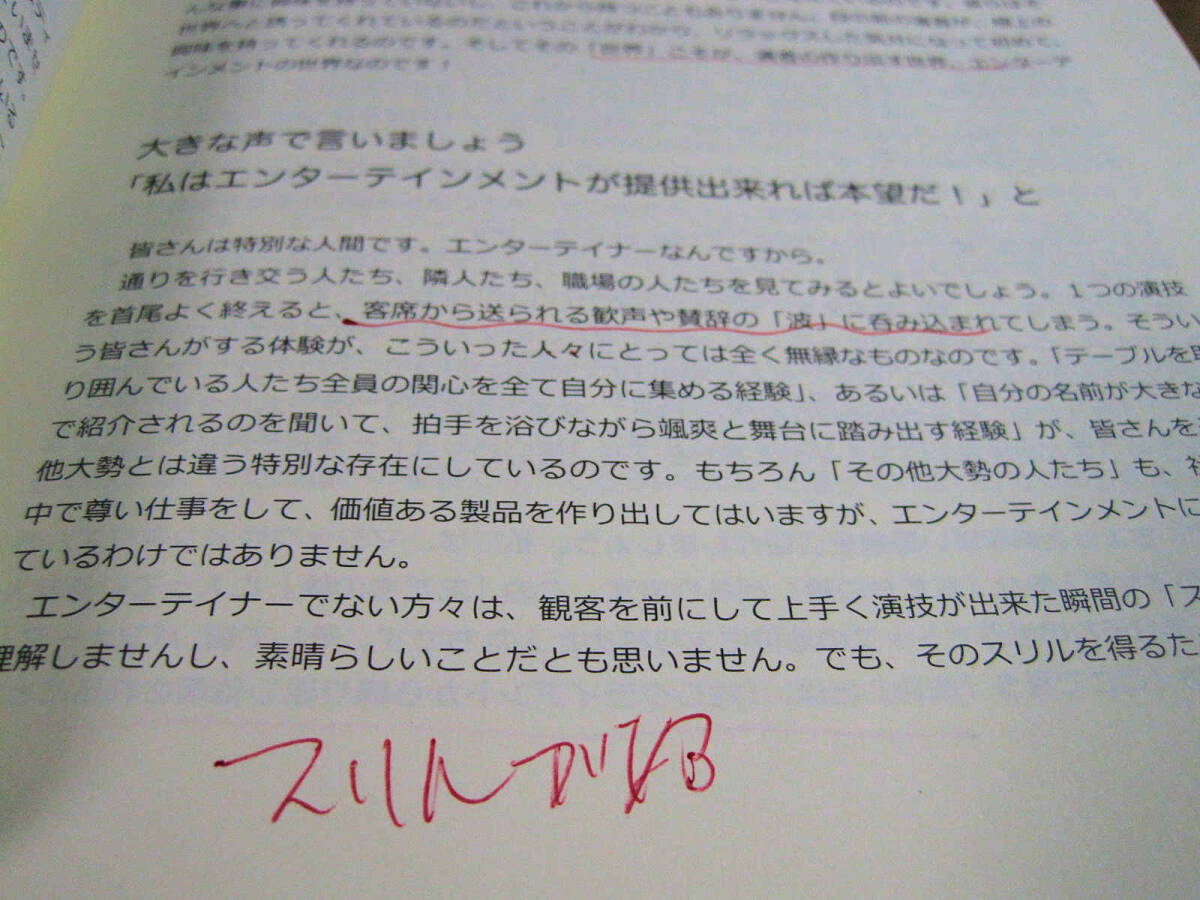 世界へと誘ってくれているのだということがわかり、リラックスした気分になって初めて、
興味を持ってくれるのです。そしてその「世界」こそが、演者の作り出す世界、エンターテ
インメントの世界なのです！
大きな声で言いましょう
「私はエンターテインメントが提供出来れば本望だ！」と
皆さんは特別な人間です。エンターテイナーなんですから。
通りを行き交う人たち、隣人たち、職場の人たちを見てみるとよいでしょう。１つの演技
を首尾よく終えると、客席から送られる歓声や賛辞の「波」に呑み込まれてしまう。そうい
う皆さんがする体験が、こういった人々にとっては全く無縁なものなのです。「テーブルを
り囲んでいる人たち全員の関心を全て自分に集める経験」、あるいは「自分の名前が大きな
で紹介されるのを聞いて、拍手を浴びながら颯爽と舞台に踏み出す経験」が、皆さんを
他大勢とは違う特別な存在にしているのです。もちろん「その他大勢の人たち」も、
中で尊い仕事をして、価値ある製品を作り出してはいますが、エンターテインメントに
ているわけではありません。
エンターテイナーでない方々は、観客を前にして上手く演技が出来た瞬間の「ス
理解しませんし、素晴らしいことだとも思いません。でも、そのスリルを得るた
スリル